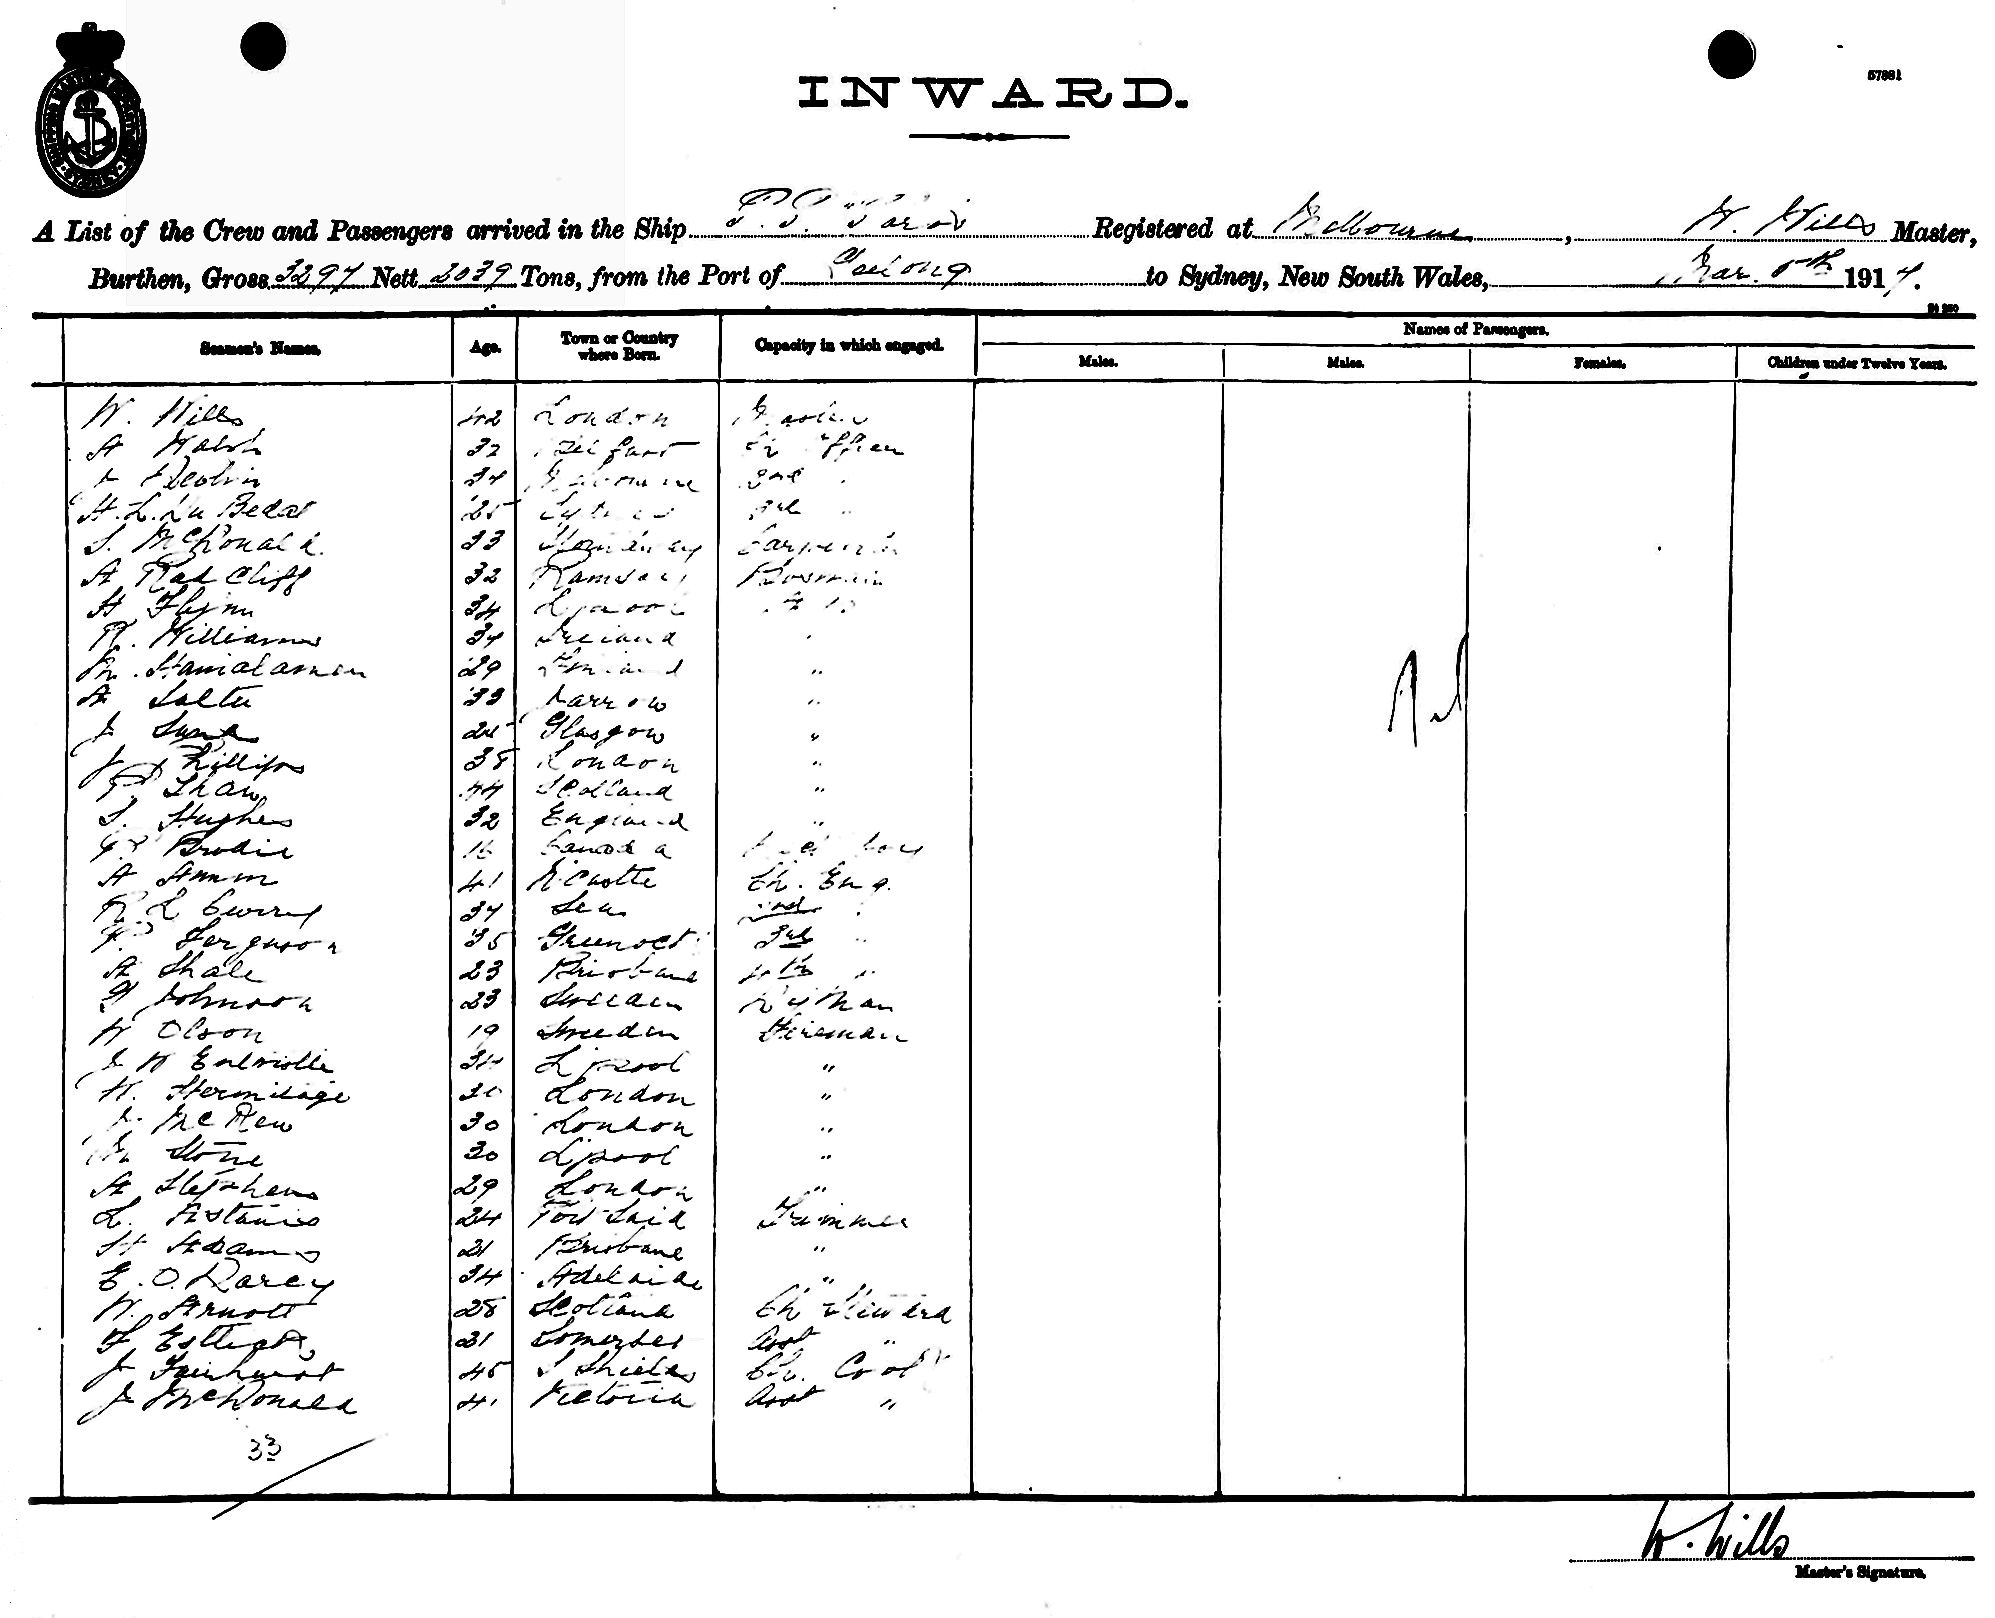 57881
INWARD.
A List of the Crew and Passengers arrived in the Ship Registered at Melbourne, W. Wills Master,
Burthen, Gross 3297 Nett 2039 Tons, from the Port of Geelong to Sydney, New South Wales, Mar. 5th 1914.
Seamen's Names. Age. Town or Country where Born. Capacity in which engaged. Names of Passengers.
Males. Males. Females. Children under Twelve Years.
W. Wills 42 London Master
A Walsh 32 Belfast Ch Officer
J Devlin 34 Melbourne 2nd "
H. L. Du Bedat 25 3rd "
S. McDonald 33 Carpenter
A Radcliff 32 Ramsey Bosman
H Flynn 34 L'pool A B
R. Williams 34 Ireland "
29 Finland "
A Salter 33 Jarrow "
J 25 Glasgow "
J Phillips 38 London "
P Shaw 44 Scotland "
S. Hughes 32 England "
G Brodie 16 Canada Deck boy
A 41 N'Castle Ch. Eng.
R. L Curry 34 Sea 2nd "
P Ferguson 35 Greenock 3rd "
A Shale 23 Brisbane 4th "
G Johnson 23 Sweden
W Olson 19 Sweden Fireman
J W Entwistle 34 L'pool "
H. Hermitage 30 London "
J. McKew 30 London "
M Stone 30 L'pool "
A Stephens 29 London "
L. 24 Port Said Trimmer
H Adams 21 Brisbane "
E. O. Darcy 34 Adelaide "
W. Arnott 28 Scotland Ch Steward
F 21 Somerset Asst "
J Fairhurst 45 S Shields Ch. Cook
J McDonald 41 Victoria Asst "
Nil
33
W. Wills
Master's Signature.